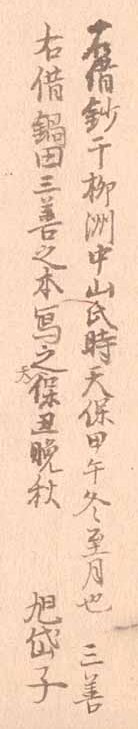 右借鈔于柳洲中山氏時天保甲午冬至月也　三善
右借鍋田三善之本写之天保丑晩秋　旭岱子